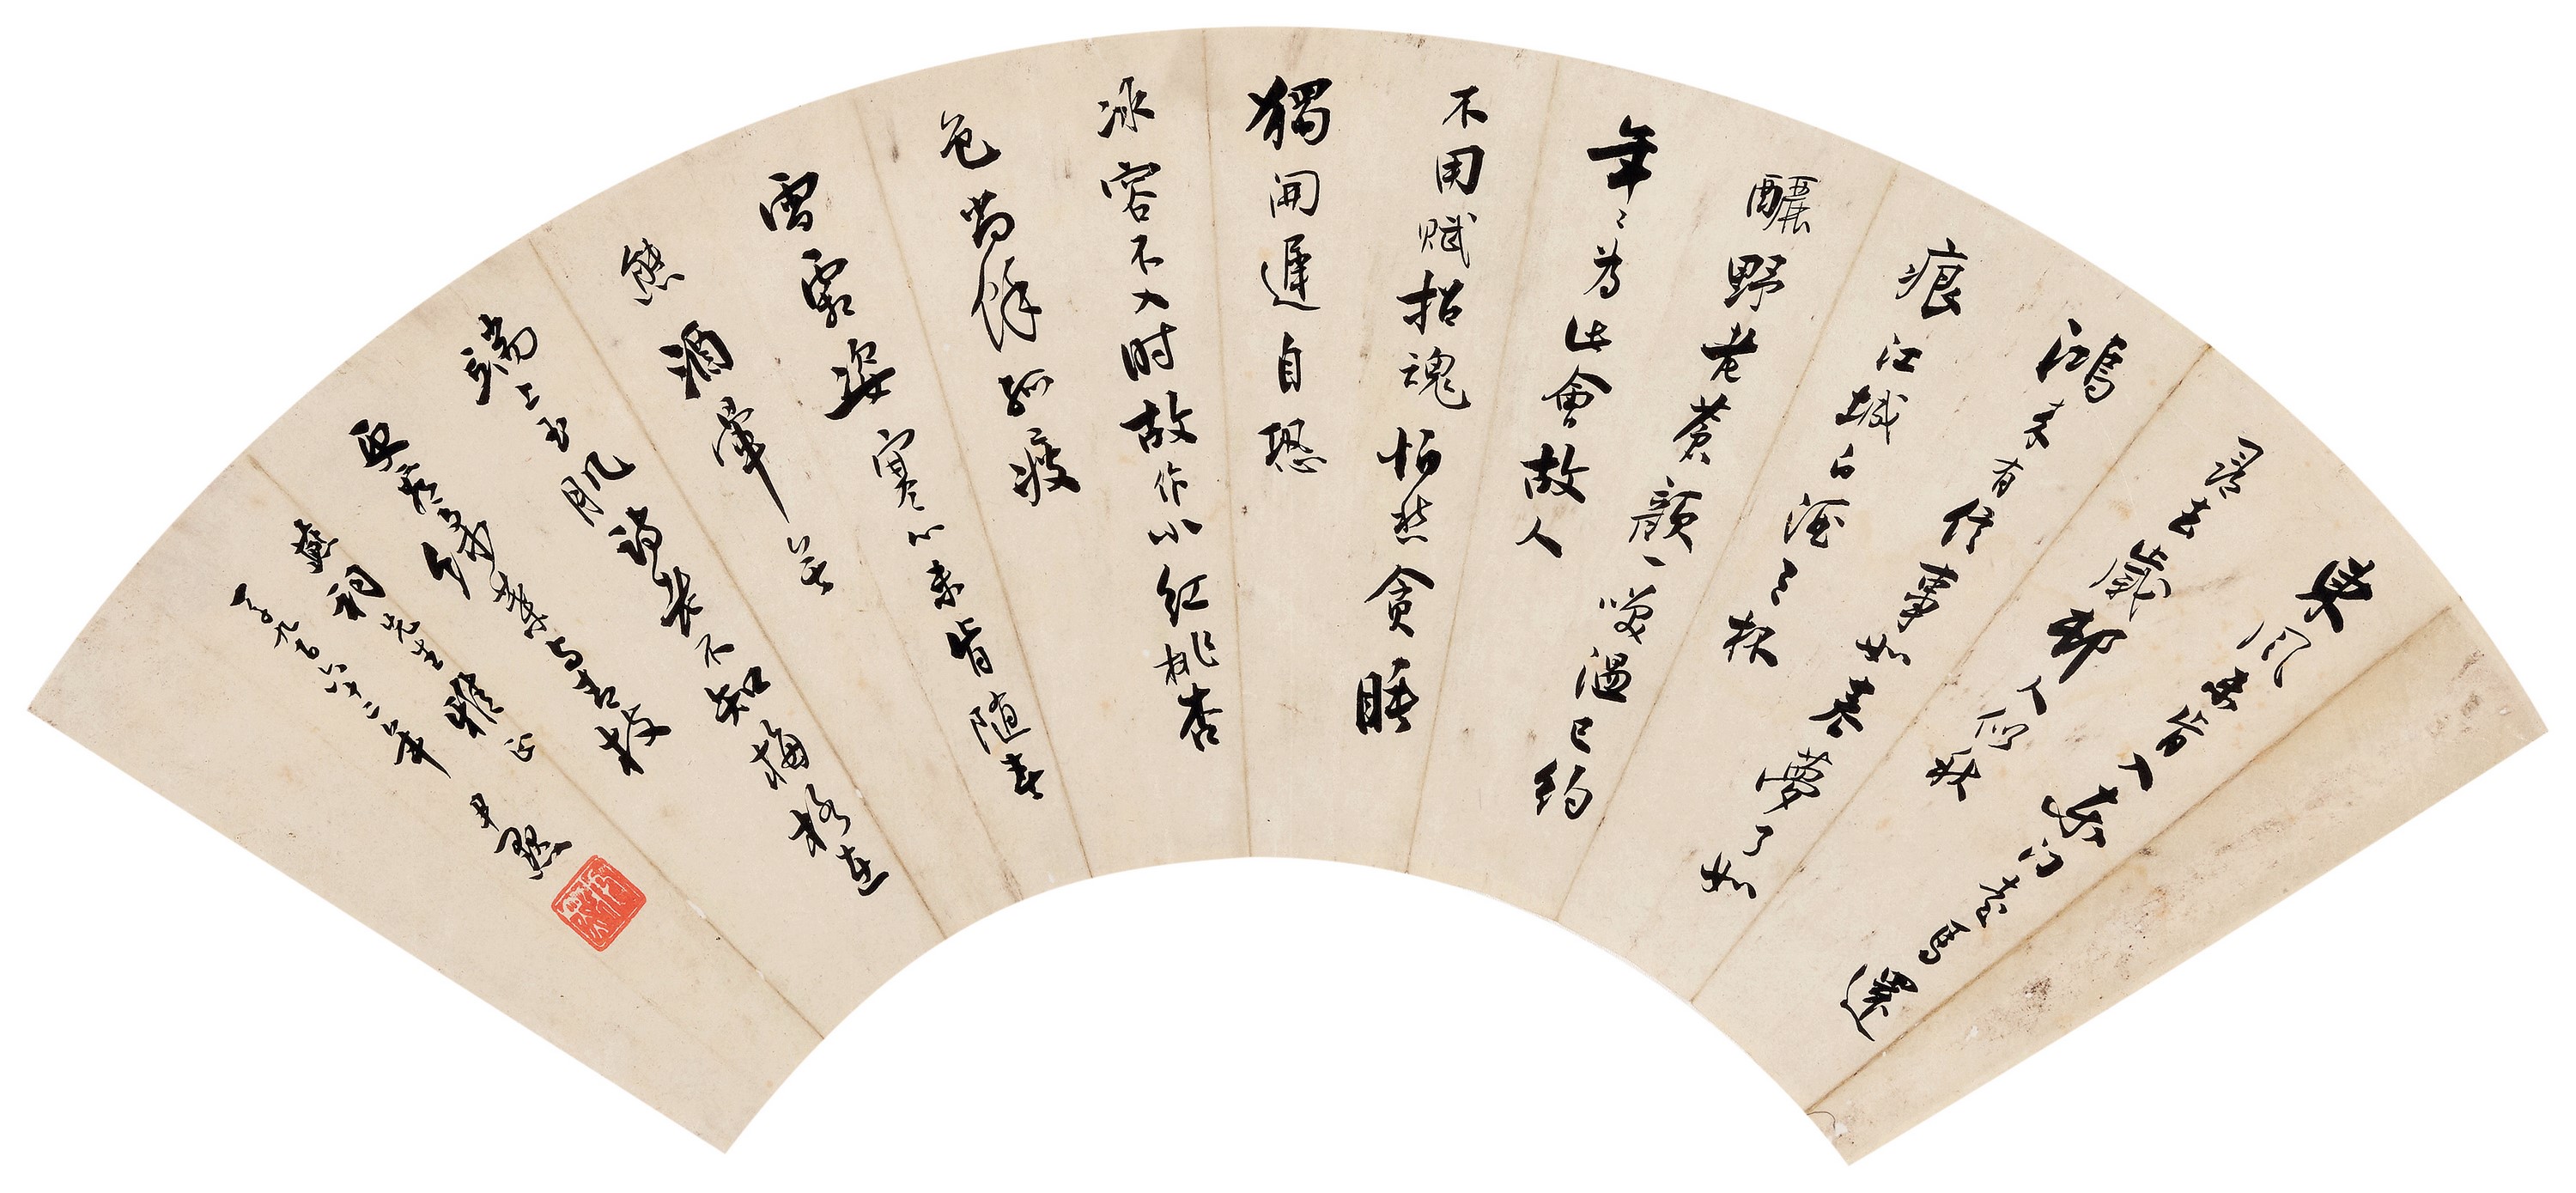 東風未肯入東門走馬還
尋去歲邨人似秋
鴻来有信事如春夢了無
痕江城白酒三杯
釅野老蒼顏一咲温已約
年〻為此會故人
不用賦招魂怕愁貪睡
獨開遲自恐
冰容不入时故作小红桃杏
色尚餘孤瘦
雪霜姿寒心未肯随春
態酒暈無
端上玉肌诗老不知梅格在
更看绿葉与青枝
先生雅正
一千九百六十二年 尹默